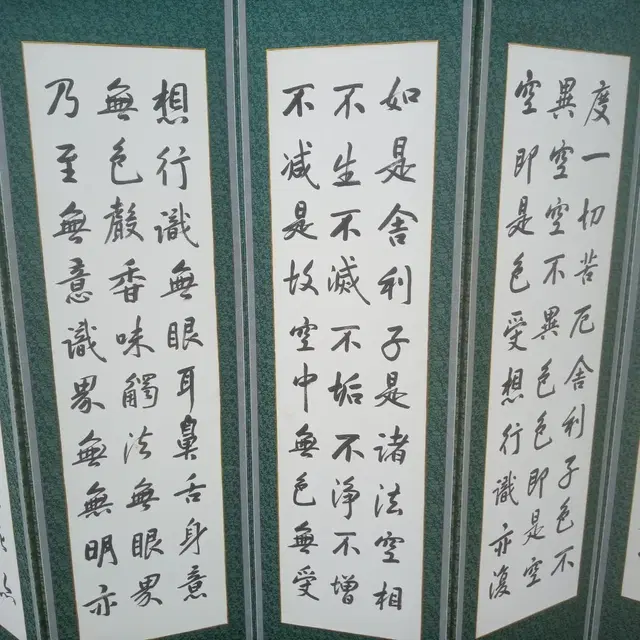 度一切苦厄舍利子色不
異空空不異色色即是空
空即是色受想行識亦復
如是舍利子是諸法空相
不生不滅不垢不淨不增
不減是故空中無色無受
想行識無眼耳鼻舌身意
無色聲香味觸法無眼界
乃至無意識界無無明亦